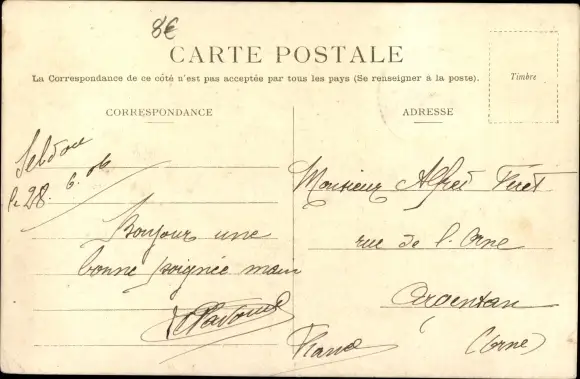 8€
CARTE POSTALE
La Correspondance de ce côté n'est pas acceptée par tous les pays (Se renseigner à la poste).
Timbre
CORRESPONDANCE
Sebdou
le 28. 6. 06
Bonjour une
bonne poignée main
ADRESSE
Monsieur Alfred
rue de l'Orne
Argentan
(Orne)
France